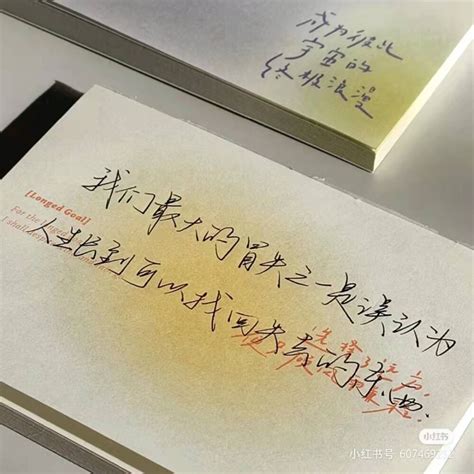 成为彼此
宇宙的
终极浪漫
[Longed Goal]
For the longed
I shall
我们最大的冒失之一是误认为
人生长到可以找回失去的东西.
选择了这
小红书
小红书号